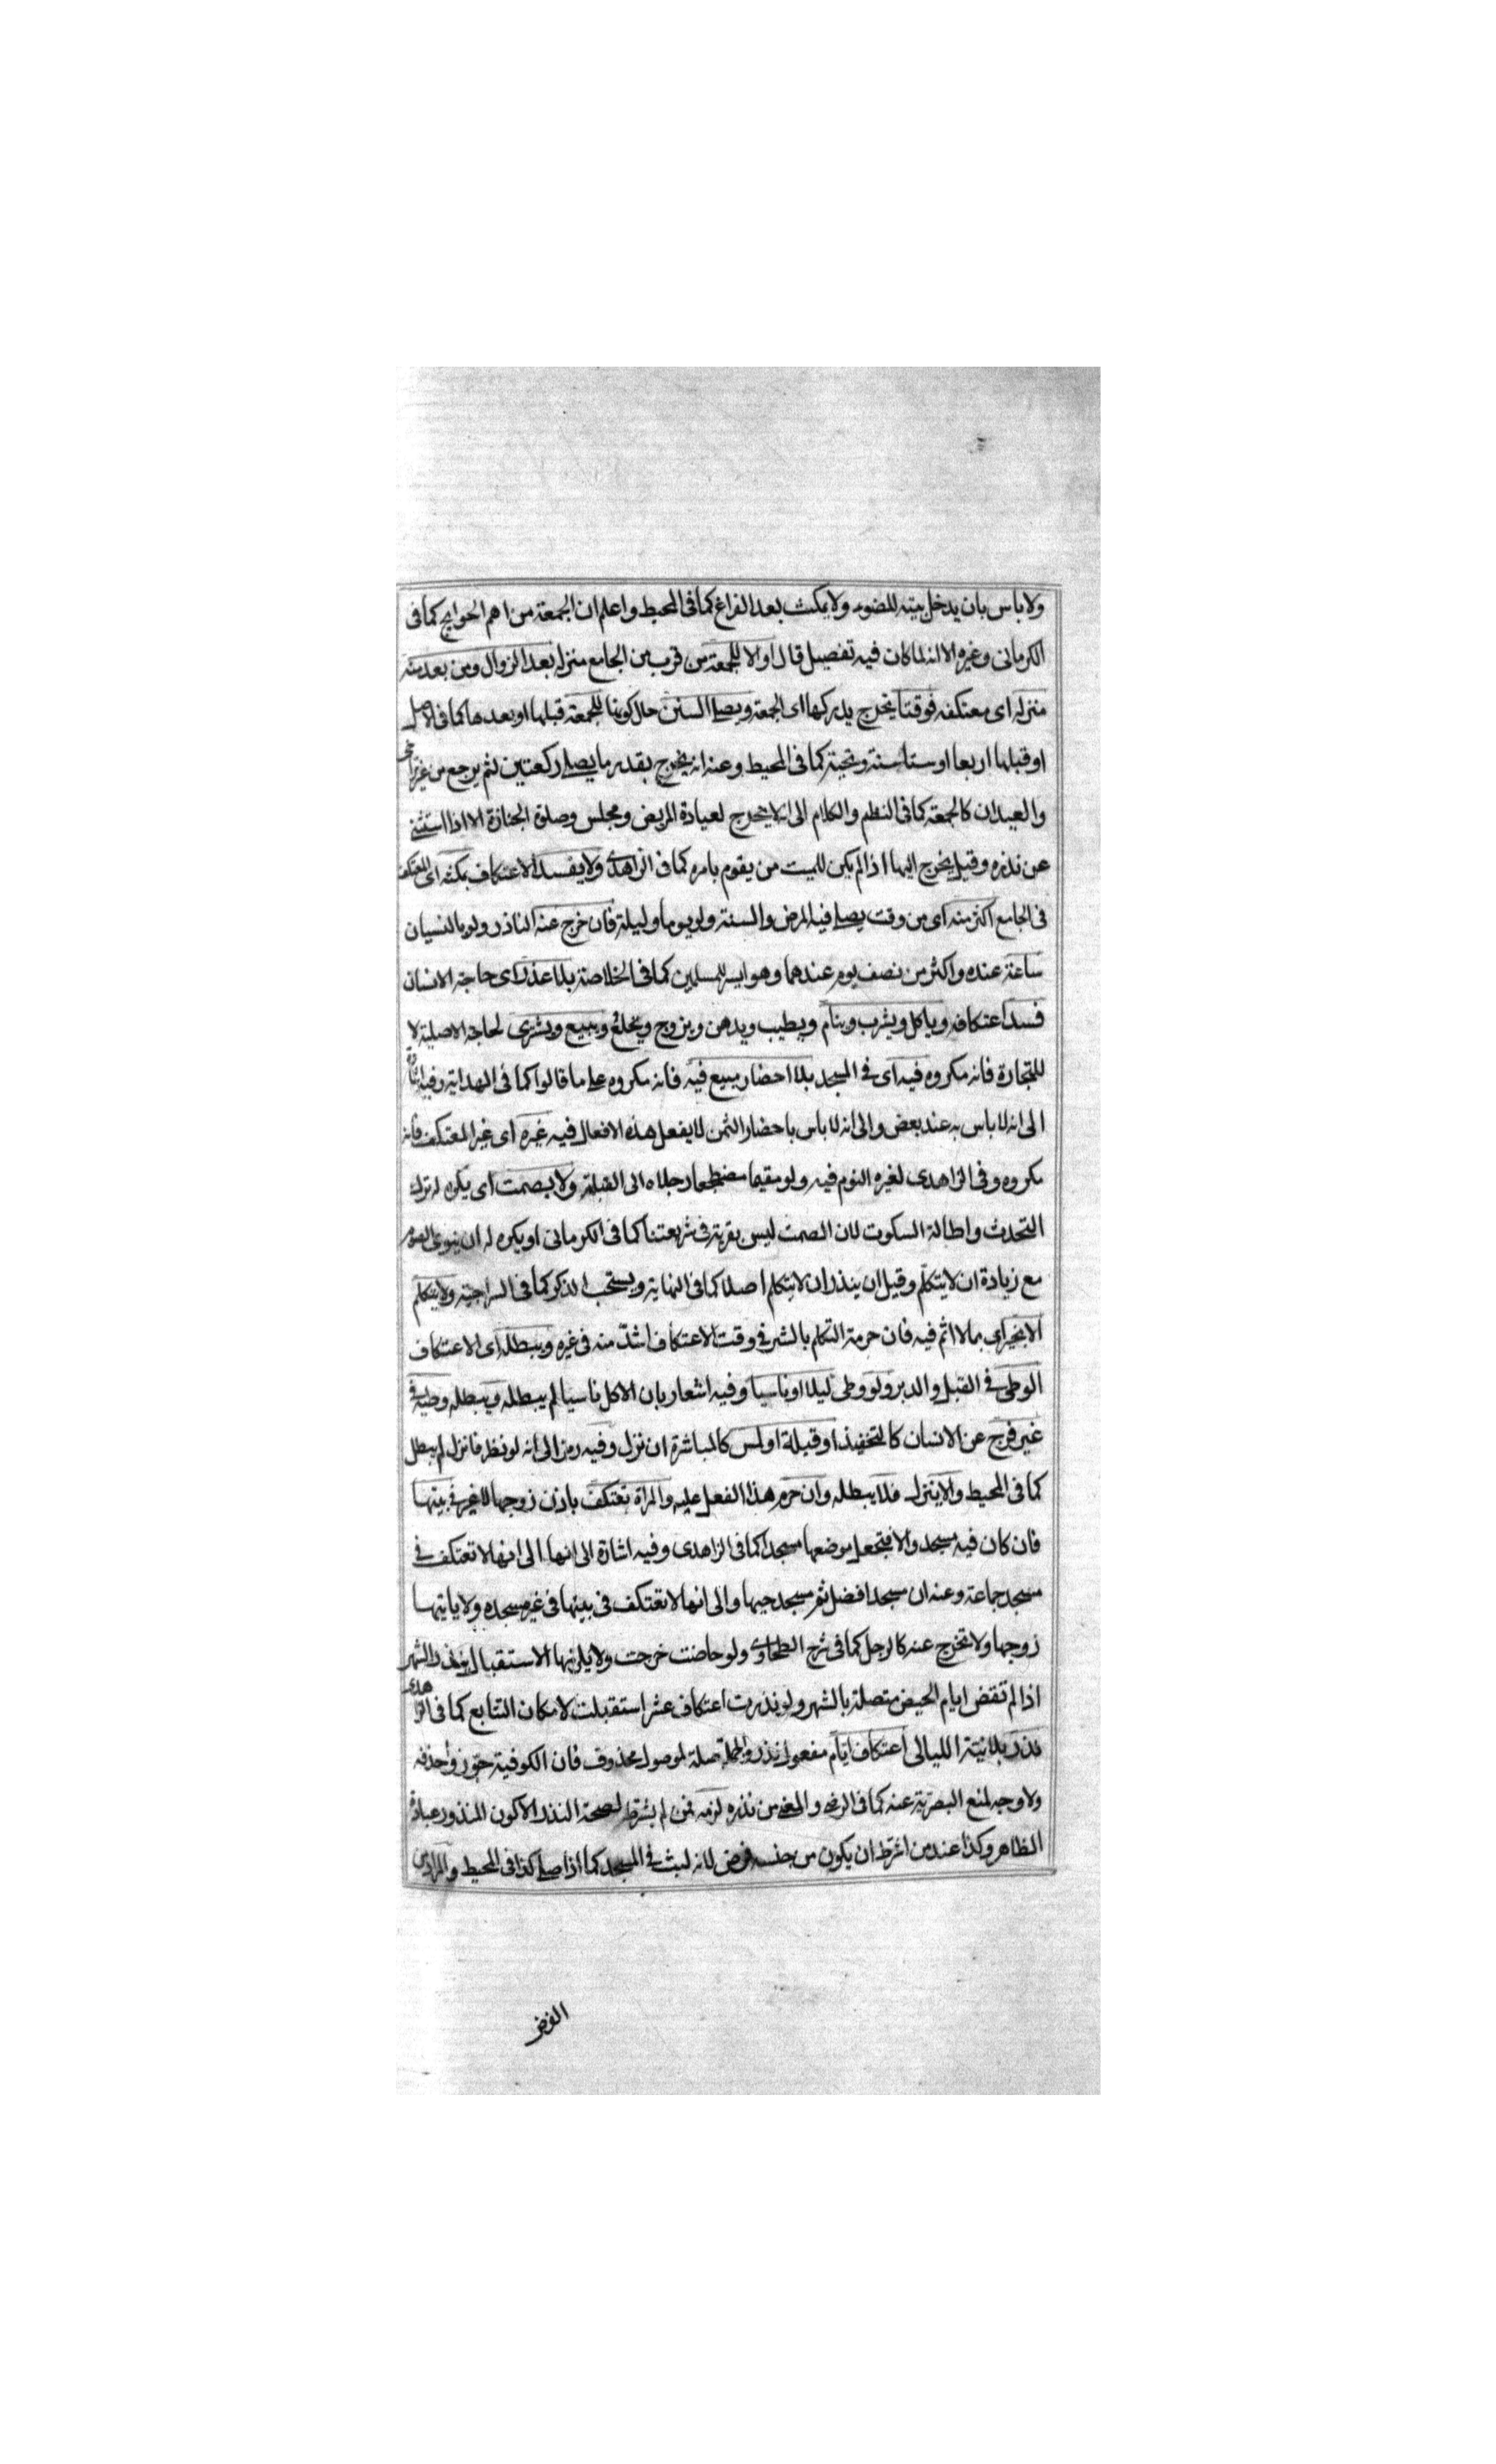 ولا باس بان يدخل بيته للضوء ولا يمكث بعد الفراغ كما فى المحيط واعلم ان الجمعة من اهم الحوايج كما فى
الكرمانى وغيره الا انه لما كان فيه تفصيل قال او لا للجمعة من قرب من الجامع منزله بعد الزوال ومن بعد منه
منزله اى معتكفه فوقتا يخرج يدركها اى الجمعة ويصلے السنن حال كونها للجمعة قبلها او بعدها كما فى الاصل
او قبلها اربعا او ستا سنة وتحية كما فى المحيط وعنه انه يخرج بقدر ما يصلے ركعتين ثم يرجع من غير
والعيدان كالجمعة كما فى النظم والكلام الى انه لا يخرج لعيادة المريض ومجلس وصلوة الجنازة الا اذا استثنے
عن نذره وقيل يخرج اليها اذا لم يكن للميت من يقوم بامره كما فى الزاهدى ولا يفسد الاعتكاف بمكثه اى المعتكف
فى الجامع اكثر منه اى من وقت يصلے فيه الفرض والسنة ولو يوما وليلة فان خرج عنه الناذر ولو بالنسيان
ساعة عنده واكثر من نصف يوم عندهما وهو ايسر للمسلمين كما فى الخلاصة بلا عذر اى حاجة الانسان
فسد اعتكافه وياكل ويشرب وينام ويطيب ويدهن ويزوج ويخلع ويبيع ويشترى لحاجة الاصلية لا
للتجارة فانه مكروه فيه اى فے المسجد بلا احضار مبيع فيه فانه مكروه علے ما قالوا كما فى الهداية وفيه اشارة
الى انه لا باس به عند بعض والى انه لا باس باحضار الثمن لا يفعل هذه الافعال فيه غيره اى غير المعتكف فانه
مكروه وفى الزاهدى لغيره النوم فيه ولو مقيما مضطجعا رجلاه الى القبلة ولا يصمت اى يكره له ترك
التحدث واطالة السكوت لان الصمت ليس بقربة فى شريعتنا كما فى الكرمانى او يكره له ان ينوى الصوم
مع زيادة ان لا يتكلم وقيل ان ينذر ان لا يتكلم اصلا كما فى النهاية ويستحب الذكر كما فى السراجية ولا يتكلم
الا بخير اى بما لا اثم فيه فان حرمة التكلم بالشر فے وقت الاعتكاف اشد منه فى غيره ويبطله اى الاعتكاف
الوطى فے القبل والدبر ولو وطى ليلا او ناسيا وفيه اشعار بان الاكل ناسيا لم يبطله ويبطله وطيه فے
غير فرج عن الانسان كالتخفيذ او قبلة او لمس كالمباشرة ان نزل وفيه رمز الى انه لو نظر فانزل لم يبطل
كما فى المحيط والا ينزل فلا يبطله وان حرم هذا الفعل عليه والمراة تعتكف باذن زوجها لا غير فے بيتها
فان كان فيه مسجد والا فيجعل موضعها مسجدا كما فى الزاهدى وفيه اشارة الى انها الى انها لا تعتكف فے
مسجد جماعة وعنه ان مسجدا افضل ثم مسجد حيها والى انها لا تعتكف فى بيتها فى غير مسجده ولا ياتيها
زوجها ولا تخرج عنه كالرجل كما فى شرح الطحاوى ولو حاضت خرجت ولا يلزمها الاستقبال بنذر الشهر
اذا لم تقض ايام الحيض متصلة بالشهر ولو نذرت اعتكاف عشر استقبلت لامكان التتابع كما فى الزاهدى
نذر بلا نية الليالى اعتكاف ايام مفعول نذر والجملة صلة لموصول محذوف فان الكوفية جوزوا حذفه
ولا وجه لمنع البصرية عنه كما فى الرضے والمعنے من نذره لزمه فمن لم يشترط لصحة النذر الا كون المنذور عبادة
الظاهر وكذا عند من اشترط ان يكون من جنسه فرض لانه لبث فے المسجد كما اذا صلے كذا فى المحيط والمراد من
الفرض